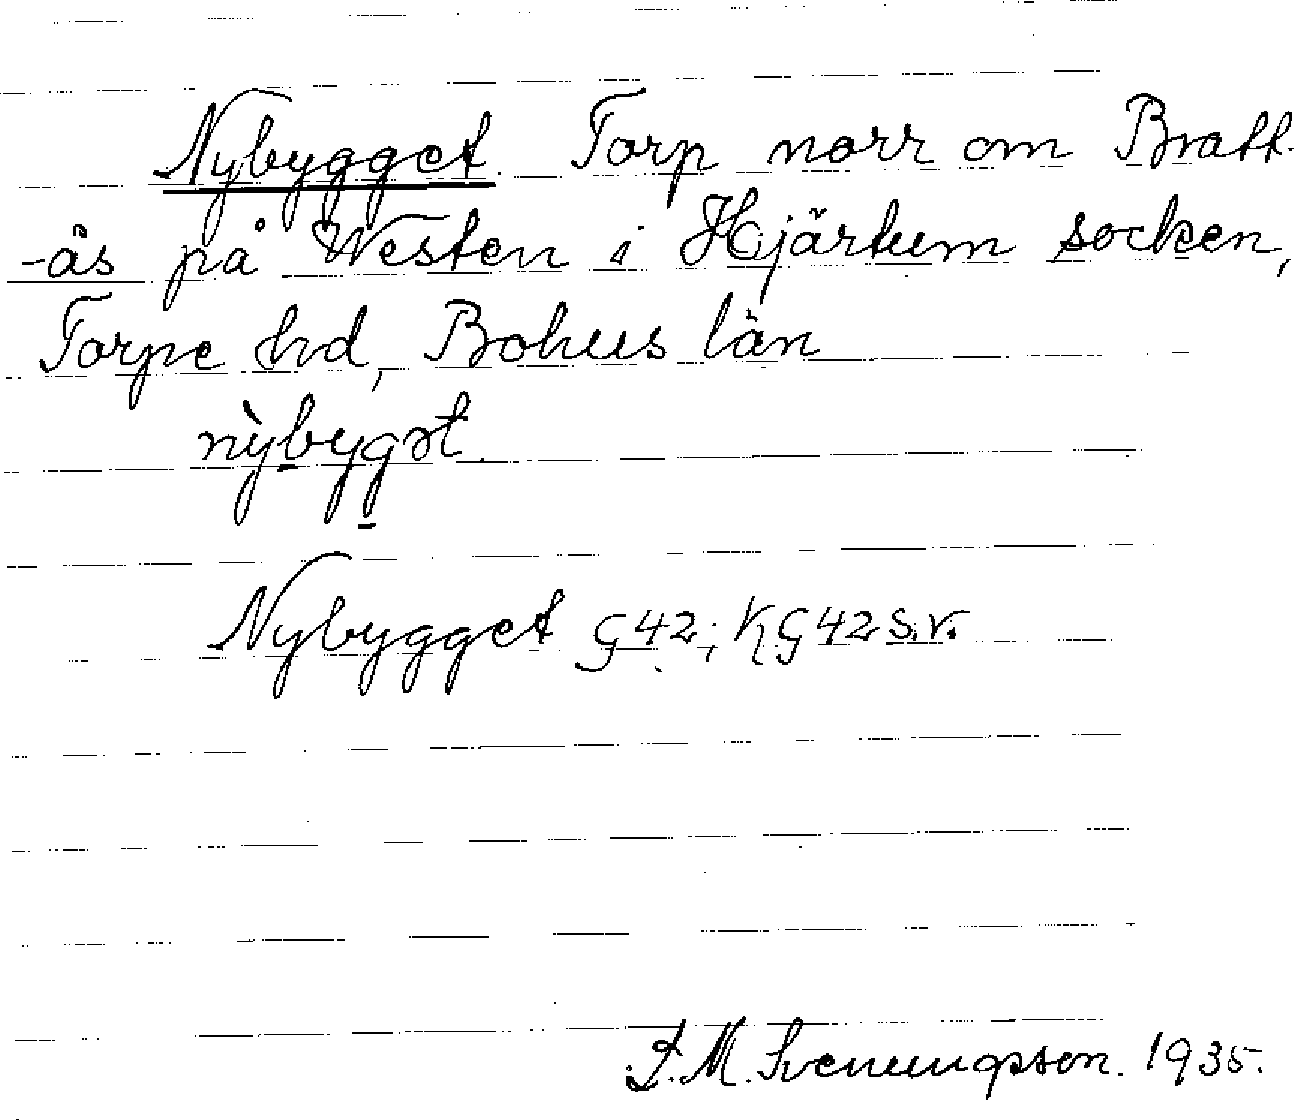 Nybygget. Torp norr om Bratt-
-ås på Westen i Hjärtum socken,
Torpe hd, Bohus län
nỳbygət.
Nybygget G42; KG42 s.v.
S.M. Svenungsson. 1935.